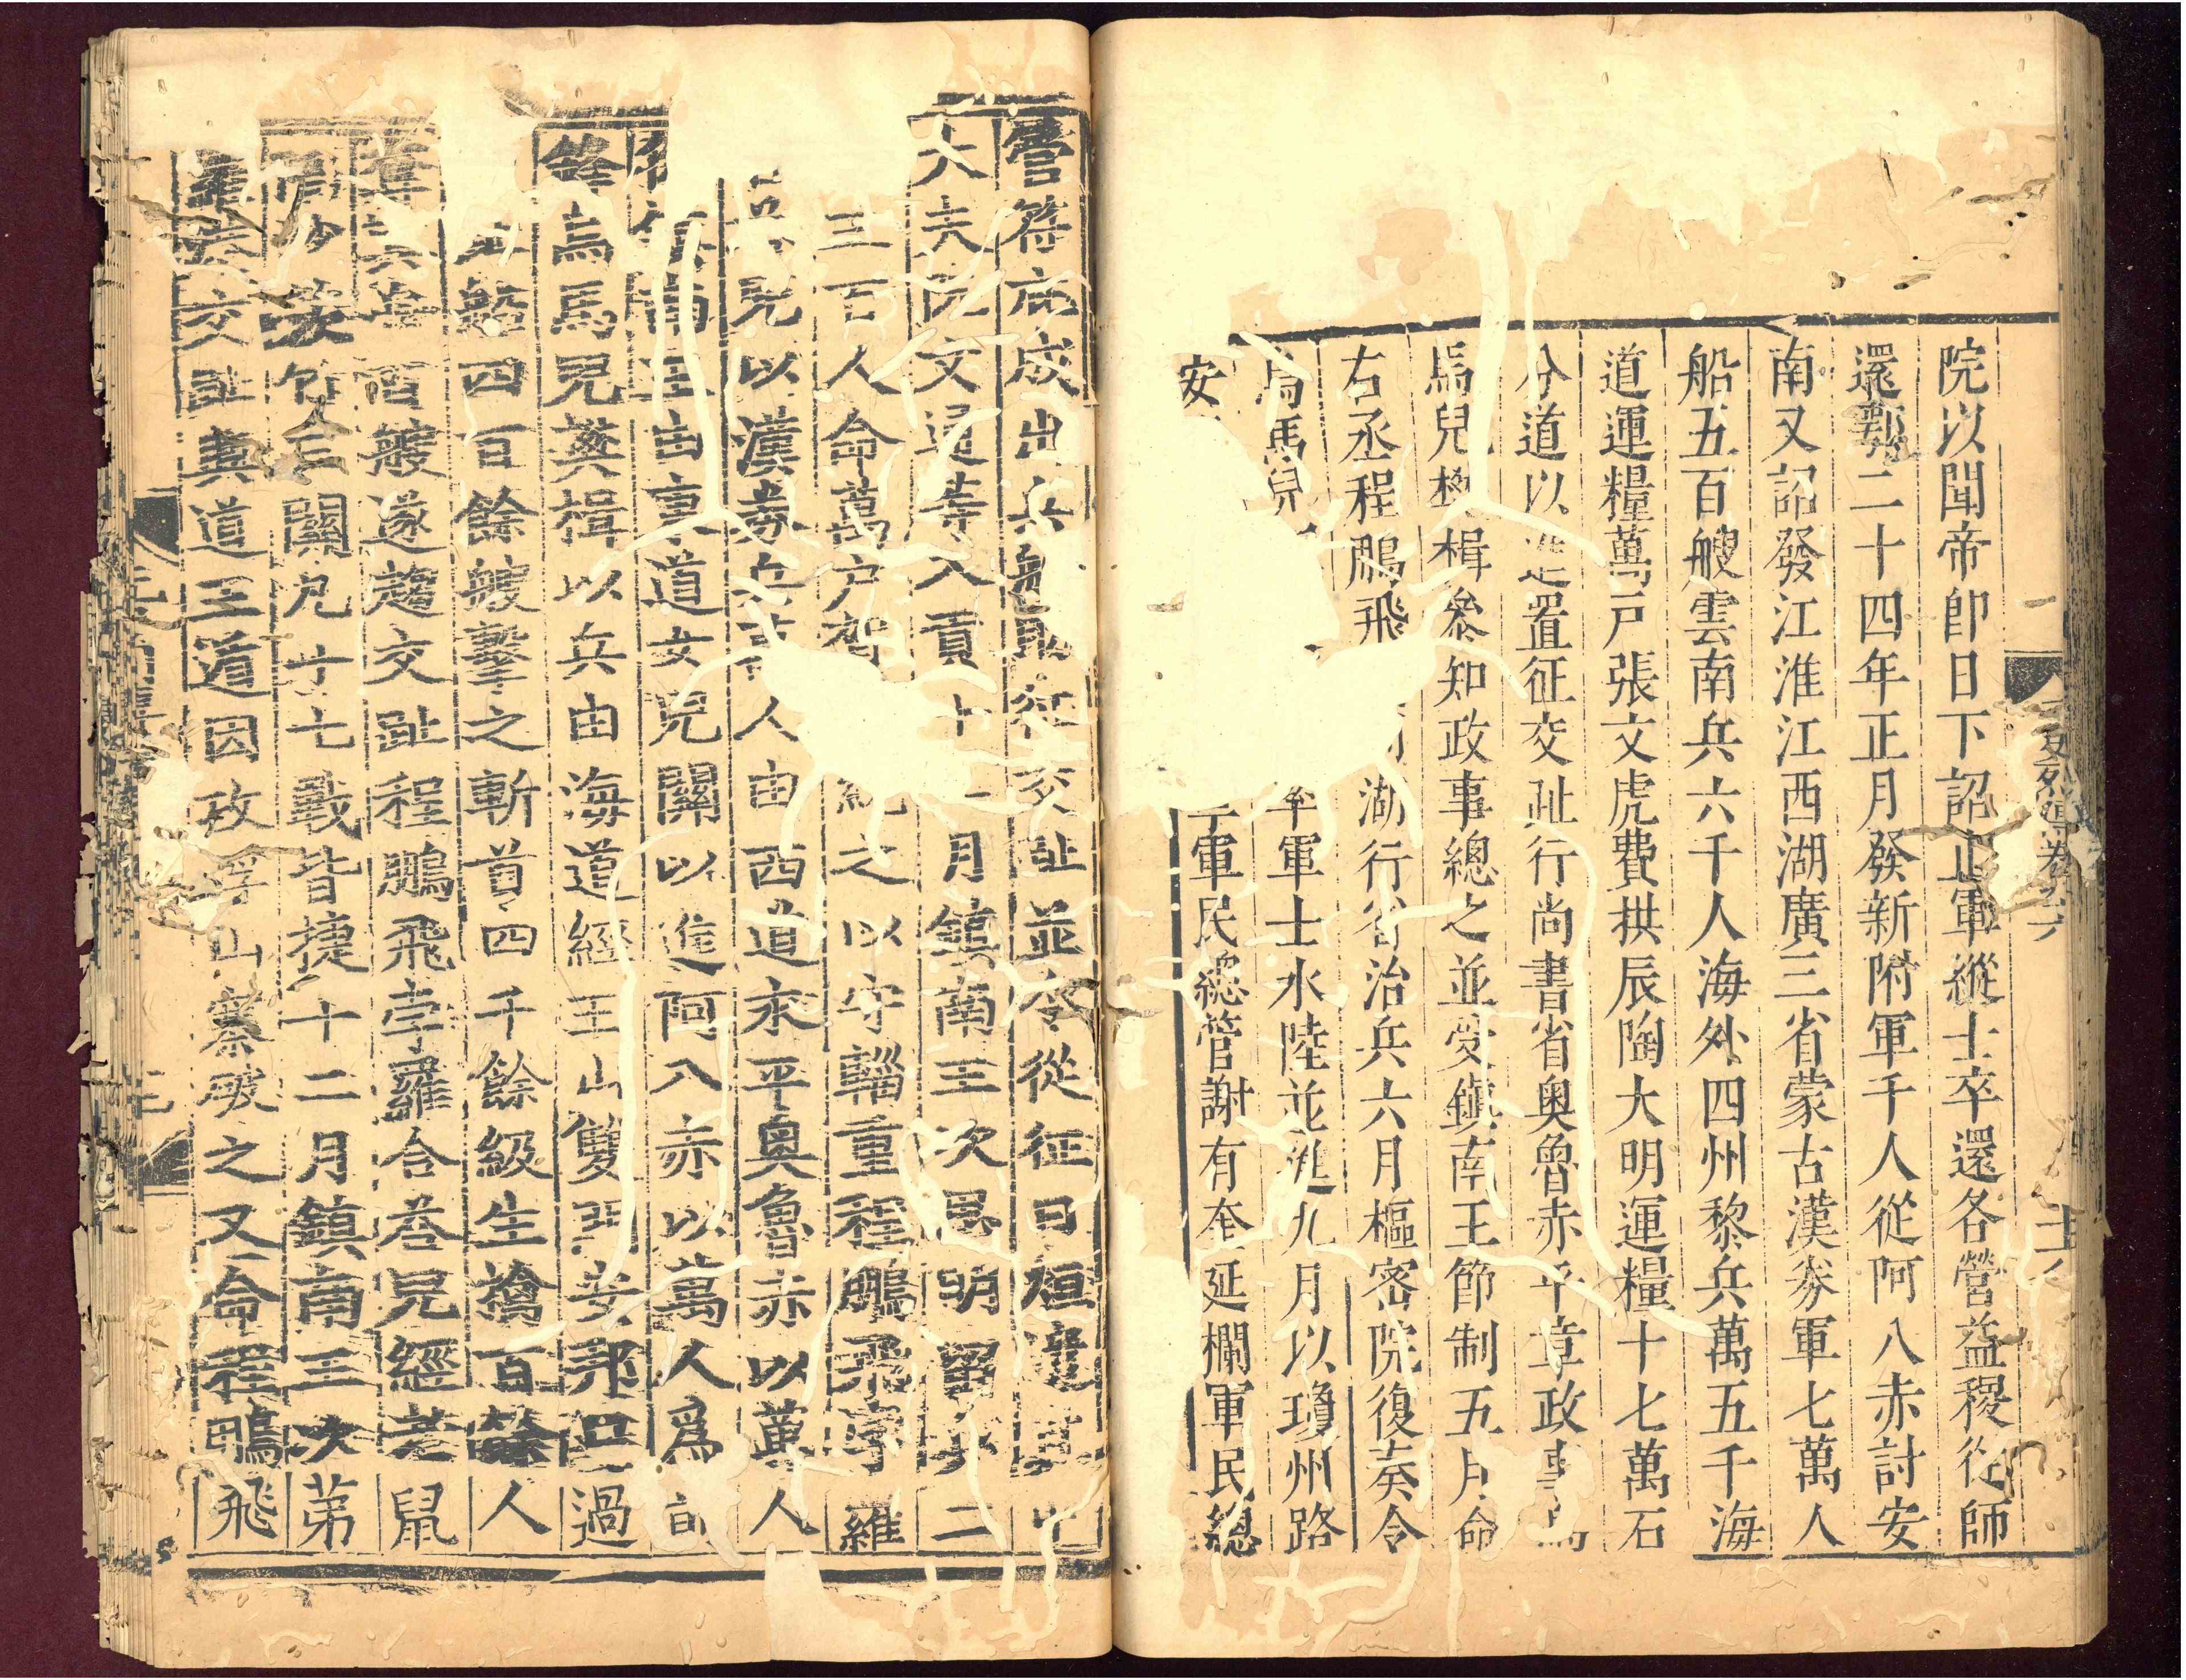 院以聞帝卽日下詔止軍縱士卒還各營益稷從師
還鄂二十四年正月發新附軍千人從阿八赤討安
南又詔發江淮江西湖廣三省蒙古漢券軍七萬人
船五百艘雲南兵六千人海外四州黎兵萬五千海
道運糧萬戸張文虎費拱辰陶大明運糧十七萬石
分道以進置征交趾行尚書省奧魯赤平章政事烏
馬兒樊楫參知政事總之並受鎮南王節制五月命
右丞程鵬飛湖行省治兵六月樞密院復奏令
烏馬兒率軍士水陸並進九月以瓊州路
安軍民總管謝有奎延欄軍民總
管符庇成出兵船助征交趾並令從征
大夫阮文通等入貢十一月鎮南王次思明留兵二
三百人命萬户賀統之以守輜重程鵬飛孛羅
兒以漢券兵萬人由西道永平奧魯赤以萬人
南王由東道女兒關以進阿八赤以萬人爲前
鋒烏馬兒樊楫以兵由海道經玉山雙門安邦口過
船四百餘艘擊之斬首四千餘級生擒百餘人
舟百艘遂趨交趾程鵬飛孛羅合荅兒經老鼠
沙茨竹三關凡十七戰皆捷十二月鎮南王次茅
羅交趾興道王遁因攻浮山寨破之又命程鵬飛
元